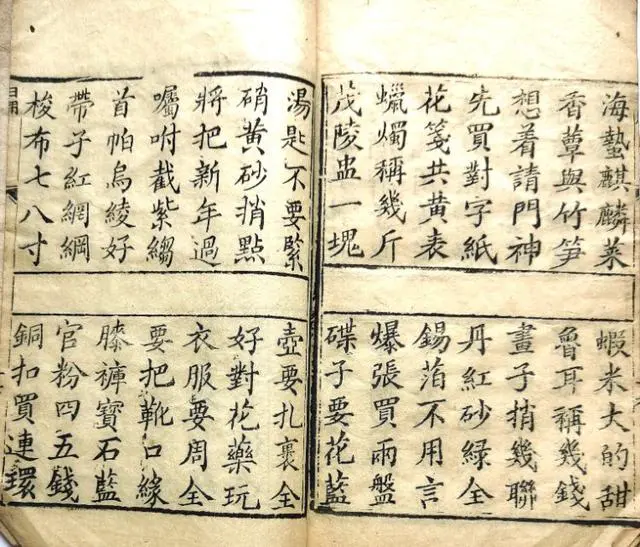 海蟄麒麟菜
蝦米大的甜
香蕈與竹笋
魯耳稱幾錢
想着請門神
畫子捎幾聯
先買對字紙
丹紅砂綠全
花箋共黃表
錫箔不用言
蠟燭稱幾斤
爆張買兩盤
茂陵盅一塊
碟子要花藍
湯匙不要緊
壺要扎裹全
硝黃砂捎點
好對花藥玩
將把新年過
衣服要周全
囑咐截紫縐
要把靴口緣
首帕烏綾好
膝褲寶石藍
帶子紅網綱
官粉四五錢
梭布七八寸
銅扣買連環
日用